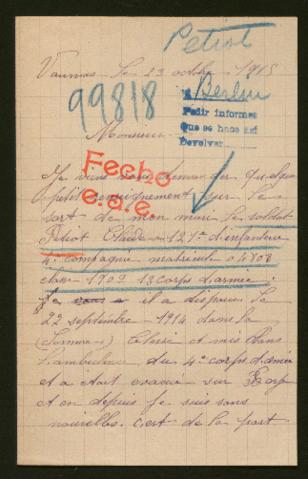 Petiot
le 23 octobre 1915
99818
Berlin
Pedir informes
que se hace así
Devolver
Monsieur
Fecho
e.s.e.
Je viens vous demander quelque
petit renseignement sur le
sort de mon mari le soldat
Petiot Claude 121e d'infanterie
4e compagnie matricule 04708
classe 1909 13 corps d'armée
il a disparu le
22 septembre 1914 dans la
(Somme) blessé et mis dans
l'ambulance du 4e corps d'armée
et a était évacué sur
et en depuis je suis sans
nouvelles. c'est de la part